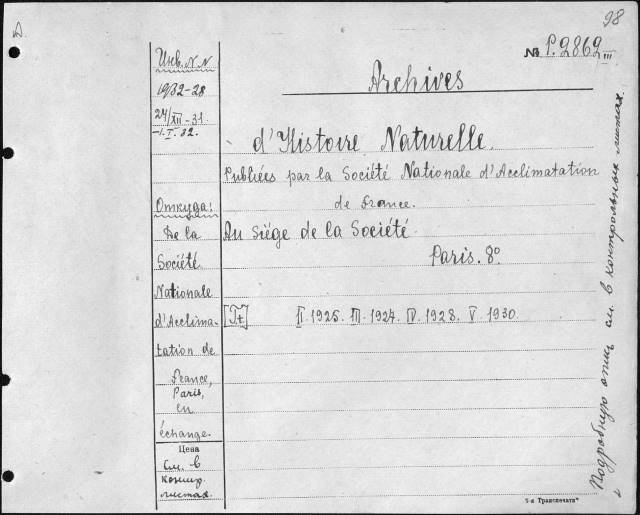 А.
98
№ P.2862 III
Archives
d'Histoire Naturelle.
Publiées par la Société Nationale d'Acclimatation
de France.
Au Siége de la Société
Paris. 8°
II 1925. III 1924. IV. 1928. V 1930.
Инв. N.N
1932-28
24/XII-31.
-1.I.32.
Откуда:
De la
Société
Nationale
d'Acclima-
tation de
France,
Paris,
en
échange.
Цена
См. в
контр.
листах.
Подробную опись см. в контрольных листах.
Транспечати"